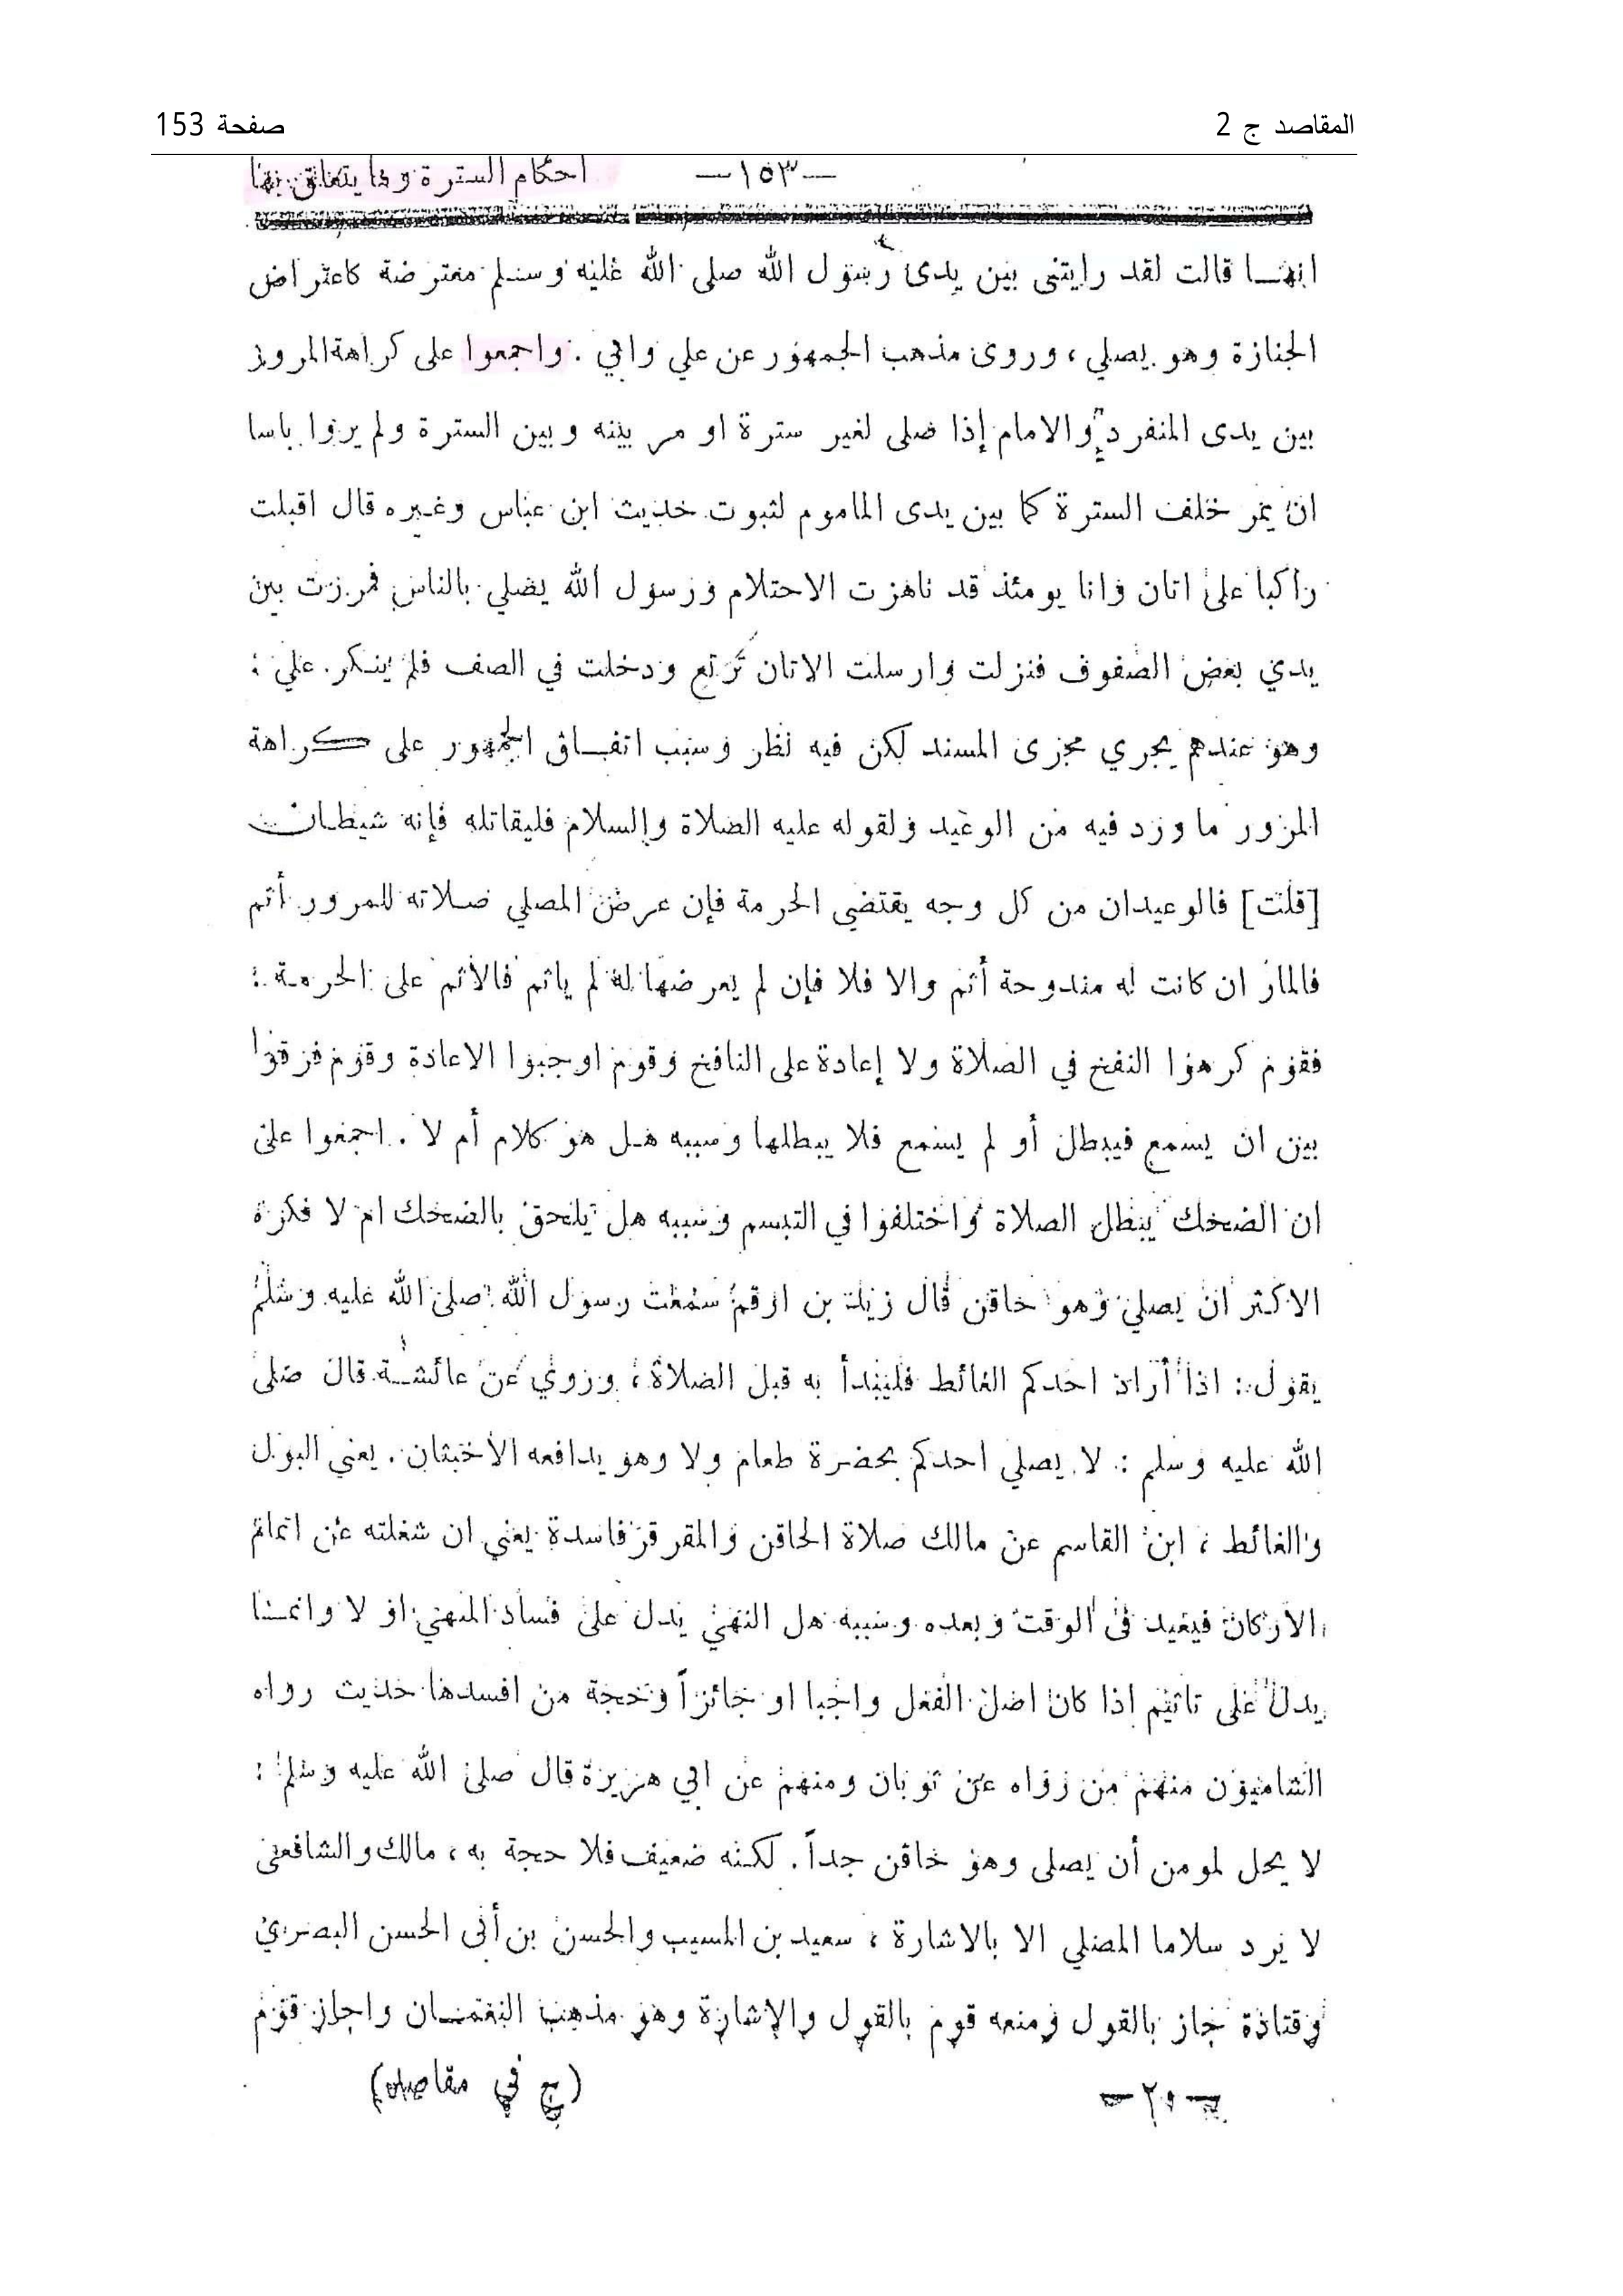 المقاصد ج 2
صفحة 153
—١٥٣— احكام السترة وما يتعلق بها
انها قالت لقد رايتنى بين يدى رسول الله صلى الله عليه وسلم معترضة كاعتراض
الجنازة وهو يصلي ، وروى مذهب الجمهور عن علي وابي . واجمعوا على كراهة المرور
بين يدى المنفرد والامام إذا صلى لغير سترة او مر بينه وبين السترة ولم يروا باسا
ان يمر خلف السترة كما بين يدى الماموم لثبوت حديث ابن عباس وغيره قال اقبلت
راكبا على اتان وانا يومئذ قد ناهزت الاحتلام ورسول الله يصلي بالناس فمررت بين
يدي بعض الصفوف فنزلت وارسلت الاتان ترتع ودخلت في الصف فلم ينكر علي :
وهو عندهم يجري مجرى المسند لكن فيه نظر وسبب اتفاق الجمهور على كراهة
المرور ما ورد فيه من الوعيد ولقوله عليه الصلاة والسلام فليقاتله فإنه شيطان
[قلت] فالوعيدان من كل وجه يقتضي الحرمة فإن عرض المصلي صلاته للمرور أثم
فالمار ان كانت له مندوحة أثم والا فلا فإن لم يعرضها له لم ياثم فالأثم على الحرمة :
فقوم كرهوا النفخ في الصلاة ولا إعادة على النافخ وقوم اوجبوا الاعادة وقوم فرقوا
بين ان يسمع فيبطل أو لم يسمع فلا يبطلها وسببه هل هو كلام أم لا . اجمعوا على
ان الضحك يبطل الصلاة واختلفوا في التبسم وسببه هل يلحق بالضحك ام لا فكره
الاكثر ان يصلي وهو حاقن قال زيد بن ارقم سمعت رسول الله صلى الله عليه وسلم
يقول : اذا أراد احدكم الغائط فليبدأ به قبل الصلاة ، وروي عن عائشة قال صلى
الله عليه وسلم : لا يصلي احدكم بحضرة طعام ولا وهو يدافعه الأخبثان . يعني البول
والغائط ، ابن القاسم عن مالك صلاة الحاقن والمقرقر فاسدة يعني ان شغلته عن اتمام
الأركان فيعيد فى الوقت وبعده وسببه هل النهي يدل على فساد المنهي او لا وانما
يدل على تاثيم اذا كان اصل الفعل واجبا او جائزاً وحجة من افسدها حديث رواه
الشاميون منهم من رواه عن ثوبان ومنهم عن ابي هريرة قال صلى الله عليه وسلم :
لا يحل لمومن أن يصلى وهو حاقن جداً . لكنه ضعيف فلا حجة به ، مالك والشافعى
لا يرد سلاما المصلي الا بالاشارة ، سعيد بن المسيب والحسن بن أبى الحسن البصري
وقتادة جاز بالقول ومنعه قوم بالقول والإشارة وهو مذهب النعمان واجاز قوم
— ٢٠ — (ج في مقاصد)